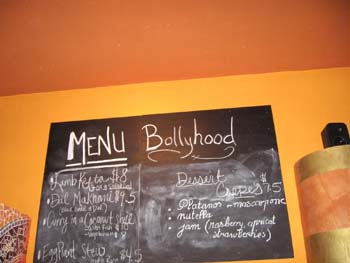 MENU Bollyhood
Lamb Kofta $8
Dal Makhani $9.5
Curry in a Coconut Shell
Eggplant Stew $4.5
Dessert
Crepes $7.5
Platanos - mascarpone
nutella
jam (rasberry, apricot
strawberries)